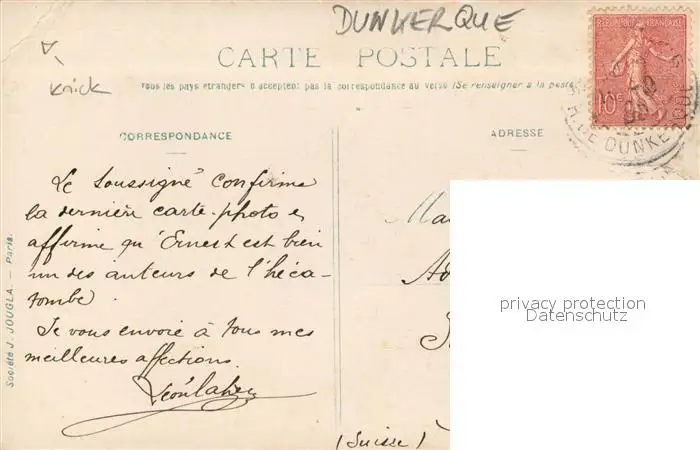 DUNKERQUE
CARTE POSTALE
Knick
Tous les pays étrangers n'acceptent pas la correspondance au verso (Se renseigner à la poste
REPUBLIQUE FRANÇAISE
10c
R. DE DUNKE
CORRESPONDANCE
ADRESSE
Le Soussigné confirme
la dernière carte-photo e
affirme qu'Ernest est bien
un des auteurs de l'héca-
tombe.
Je vous envoie à tous mes
meilleures affections.
Ma
(Suisse)
Société J. JOUGLA. — Paris.
privacy protection
Datenschutz